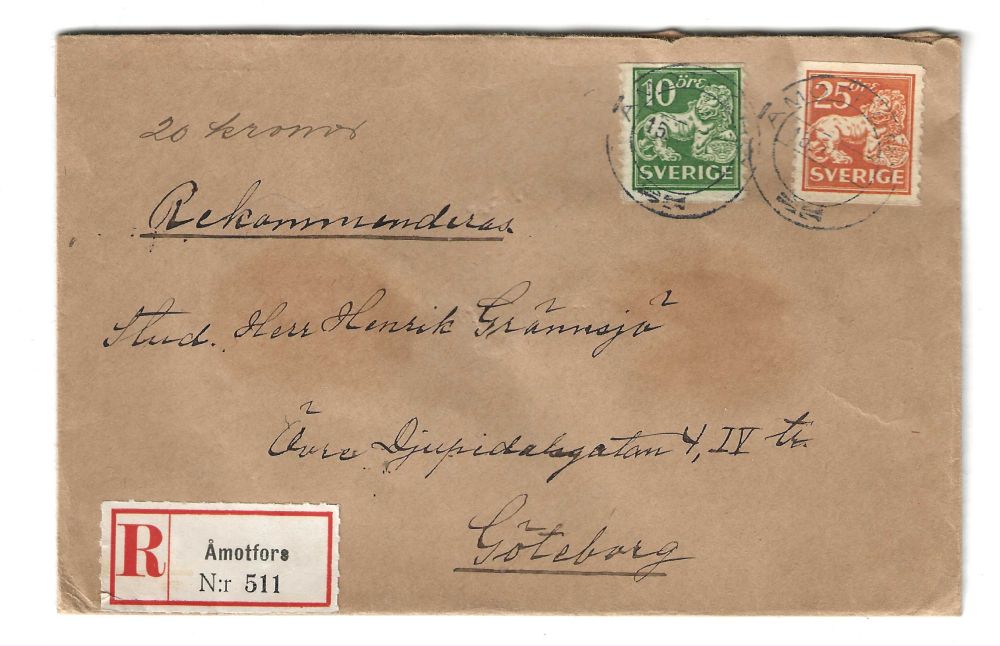 10 öre
SVERIGE
25 öre
SVERIGE
ÅMOTFORS
15
20 kronor
Rekommenderas.
Stud. Herr Henrik Grännsjö
Övre Djupidalsgatan 4, IV tr.
Göteborg
R
Åmotfors
N:r 511